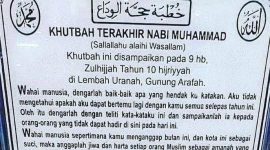 خطبة حجة الوداع
محمد
الله
KHUTBAH TERAKHIR NABI MUHAMMAD
(Sallallahu alaihi Wasallam)
Khutbah ini disampaikan pada 9 hb,
Zulhijjah Tahun 10 hijriyyah
di Lembah Uranah, Gunung Arafah.
Wahai manusia, dengarlah baik-baik apa yang hendak ku katakan. Aku tidak
mengetahui apakah aku dapat bertemu lagi dengan kamu semua selepas tahun ini.
Oleh itu dengarlah dengan teliti kata-kataku ini dan sampaikanlah ia kepada orang-
orang yang tidak dapat hadir di sini pada hari ini.
Wahai manusia sepertimana kamu menganggap bulan ini, dan kota ini sebagai
suci, maka anggaplah jiwa dan harta setiap orang Muslim sebagai amanah yang